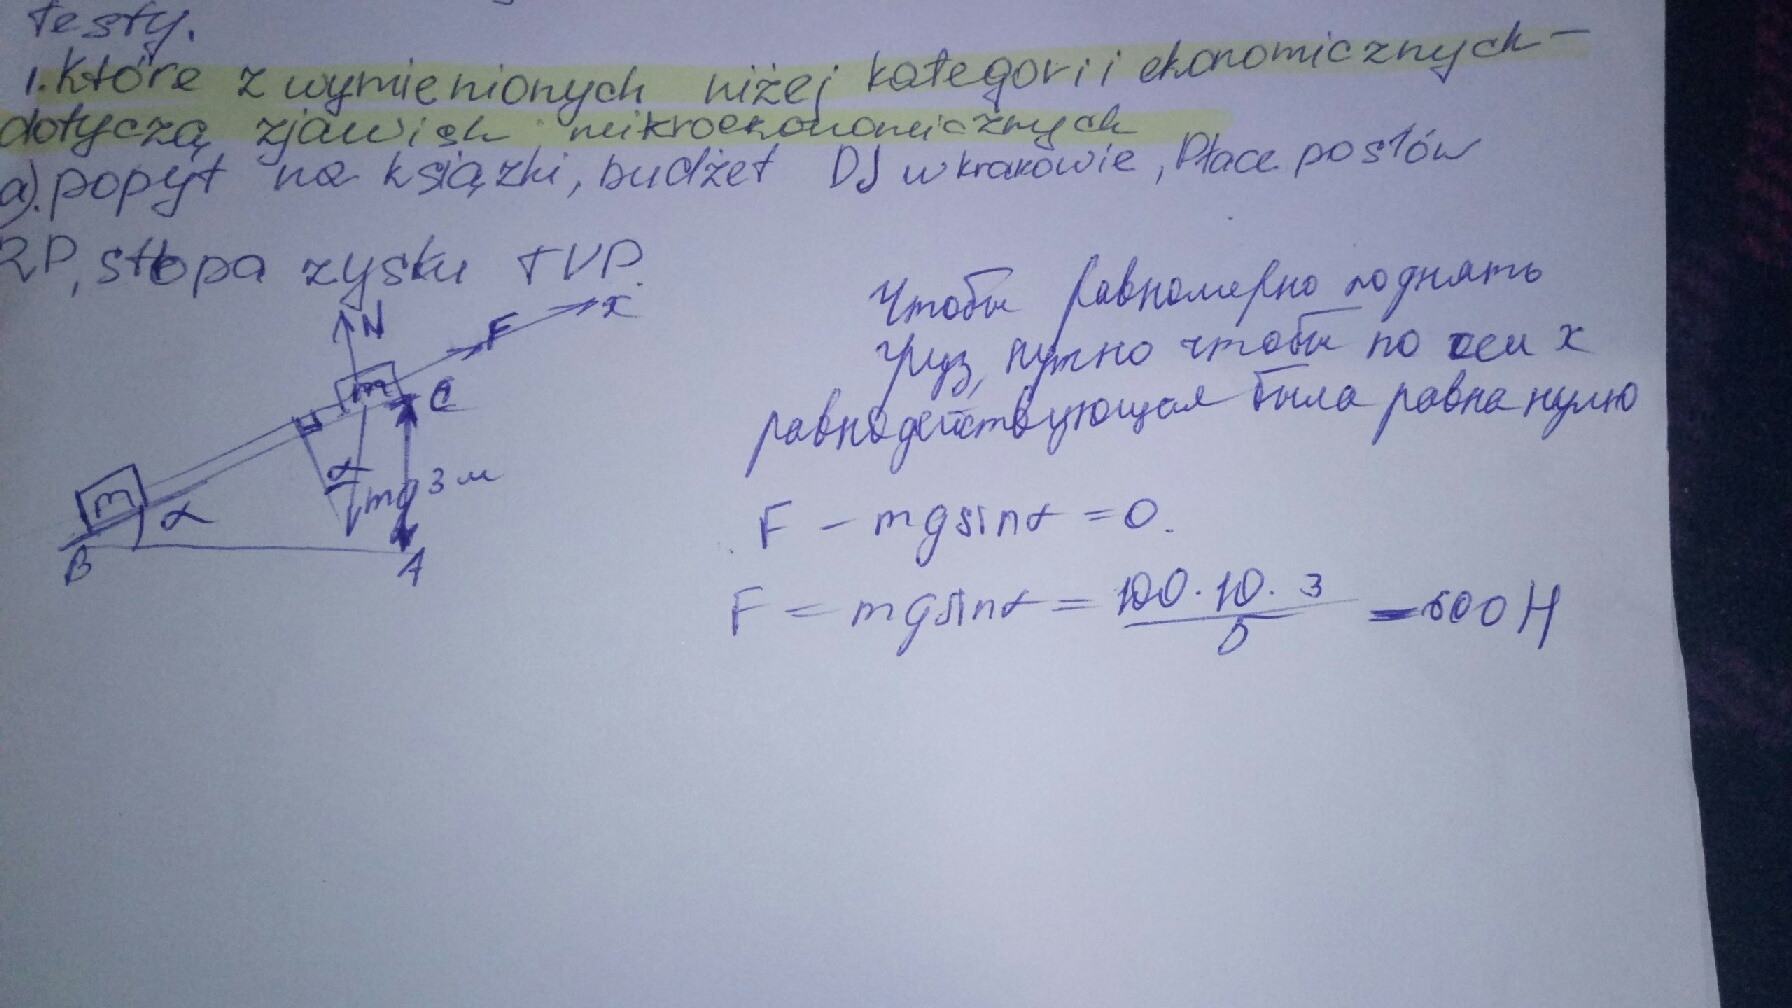 testy.
1. Które z wymienionych niżej kategorii ekonomicznych -
dotyczą zjawisk mikroekonomicznych
a). popyt na książki, budżet DJ w krakowie, Płace posłów
RP, stopa zysku TVP.
N
F
x
m
C
α
mg
3 м
m
α
B
A
Чтобы равномерно поднять
груз, нужно чтобы по оси x
равнодействующая была равна нулю
F - mg sinα = 0.
F = mg sinα = 100·10·3 / 5 = 600 Н